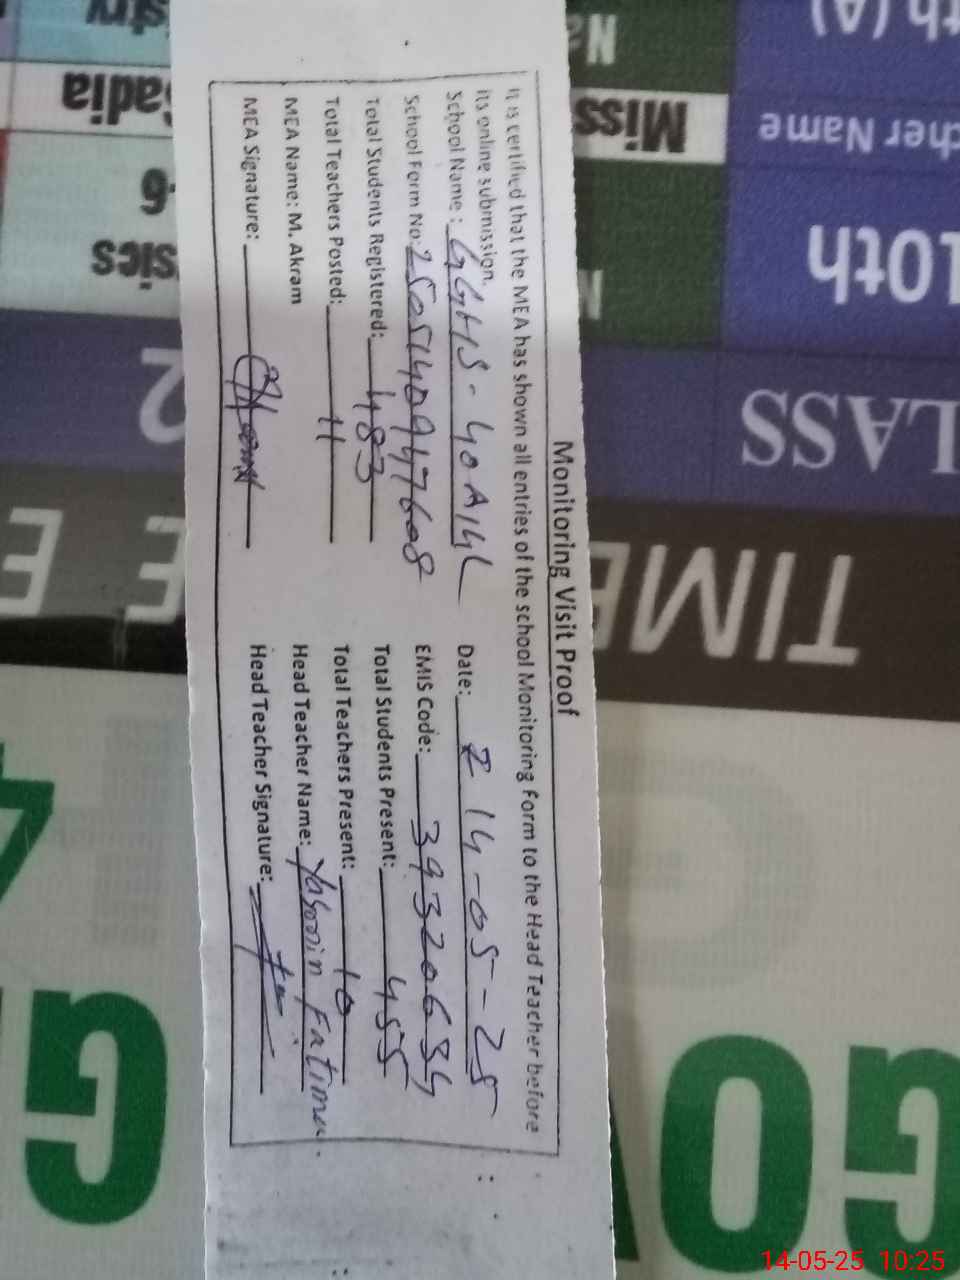 Monitoring Visit Proof
It is certified that the MEA has shown all entries of the school Monitoring Form to the Head Teacher before
its online submission.
School Name: GGHS-40A14L Date: 14-05-25
School Form No: 2505140947608 EMIS Code: 39320634
Total Students Registered: 483 Total Students Present: 455
Total Teachers Posted: 11 Total Teachers Present: 10
MEA Name: M. Akram Head Teacher Name: Yasmin Fatima
MEA Signature: Head Teacher Signature:
TIME
LASS
10th
cher Name
Miss
th (A)
2
sics
adia
GO
G
14-05-25 10:25